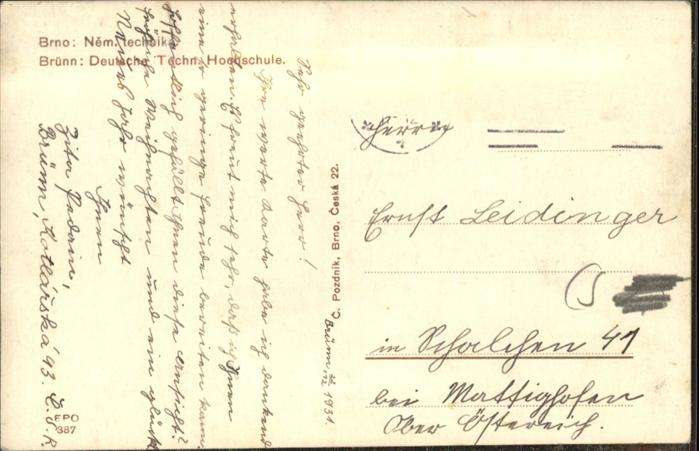 Brno: Něm. technika
Brünn: Deutsche Techn. Hochschule.
Sehr geehrter Herr!
Ihre werte Karte habe ich dankend
erhalten. Es freut mich sehr, daß ich Ihnen
eine geringe Freude bereiten kann.
Hoffentlich gefällt Ihnen diese Ansicht?
Fröhliche Weihnachten und ein glückl.
Neues Jahr wünscht
Ihnen
Zita
Brünn, Kotlářská 93. Č.S.R.
EPO
387
Č. Pozdník, Brno, Česká 22.
Brünn, 1931.
Herrn
Ernst Leidinger
in Schalchen 41
bei Mattighofen
Ober Österreich.